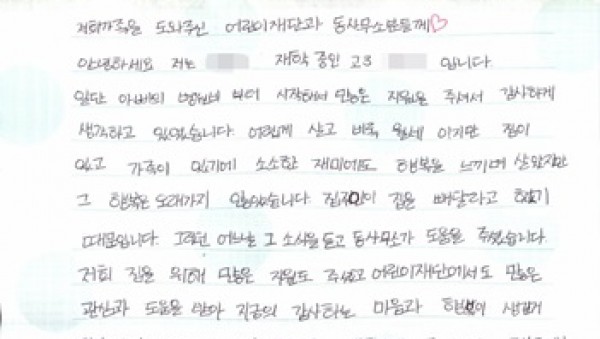 저희가족을 도와주신 어린이재단과 동사무소분들께♡
안녕하세요 저는 재학 중인 고3 입니다.
일단 아빠의 병원비 부터 시작해서 많은 지원을 주셔서 감사하게
생각하고 있었습니다. 어렵게 살고 비록 월세 이지만 집이
있고 가족이 있기에 소소한 재미에도 행복을 느끼며 살았지만
그 행복은 오래가지 않았습니다. 집주인이 집을 빼달라고 했기
때문입니다. 그러던 어느날 그 소식을 듣고 동사무소가 도움을 주셨습니다.
저희 집을 위해 많은 지원도 주셨고 어린이재단에서도 많은
관심과 도움을 받아 지금의 감사하는 마음과 행복이 생긴게